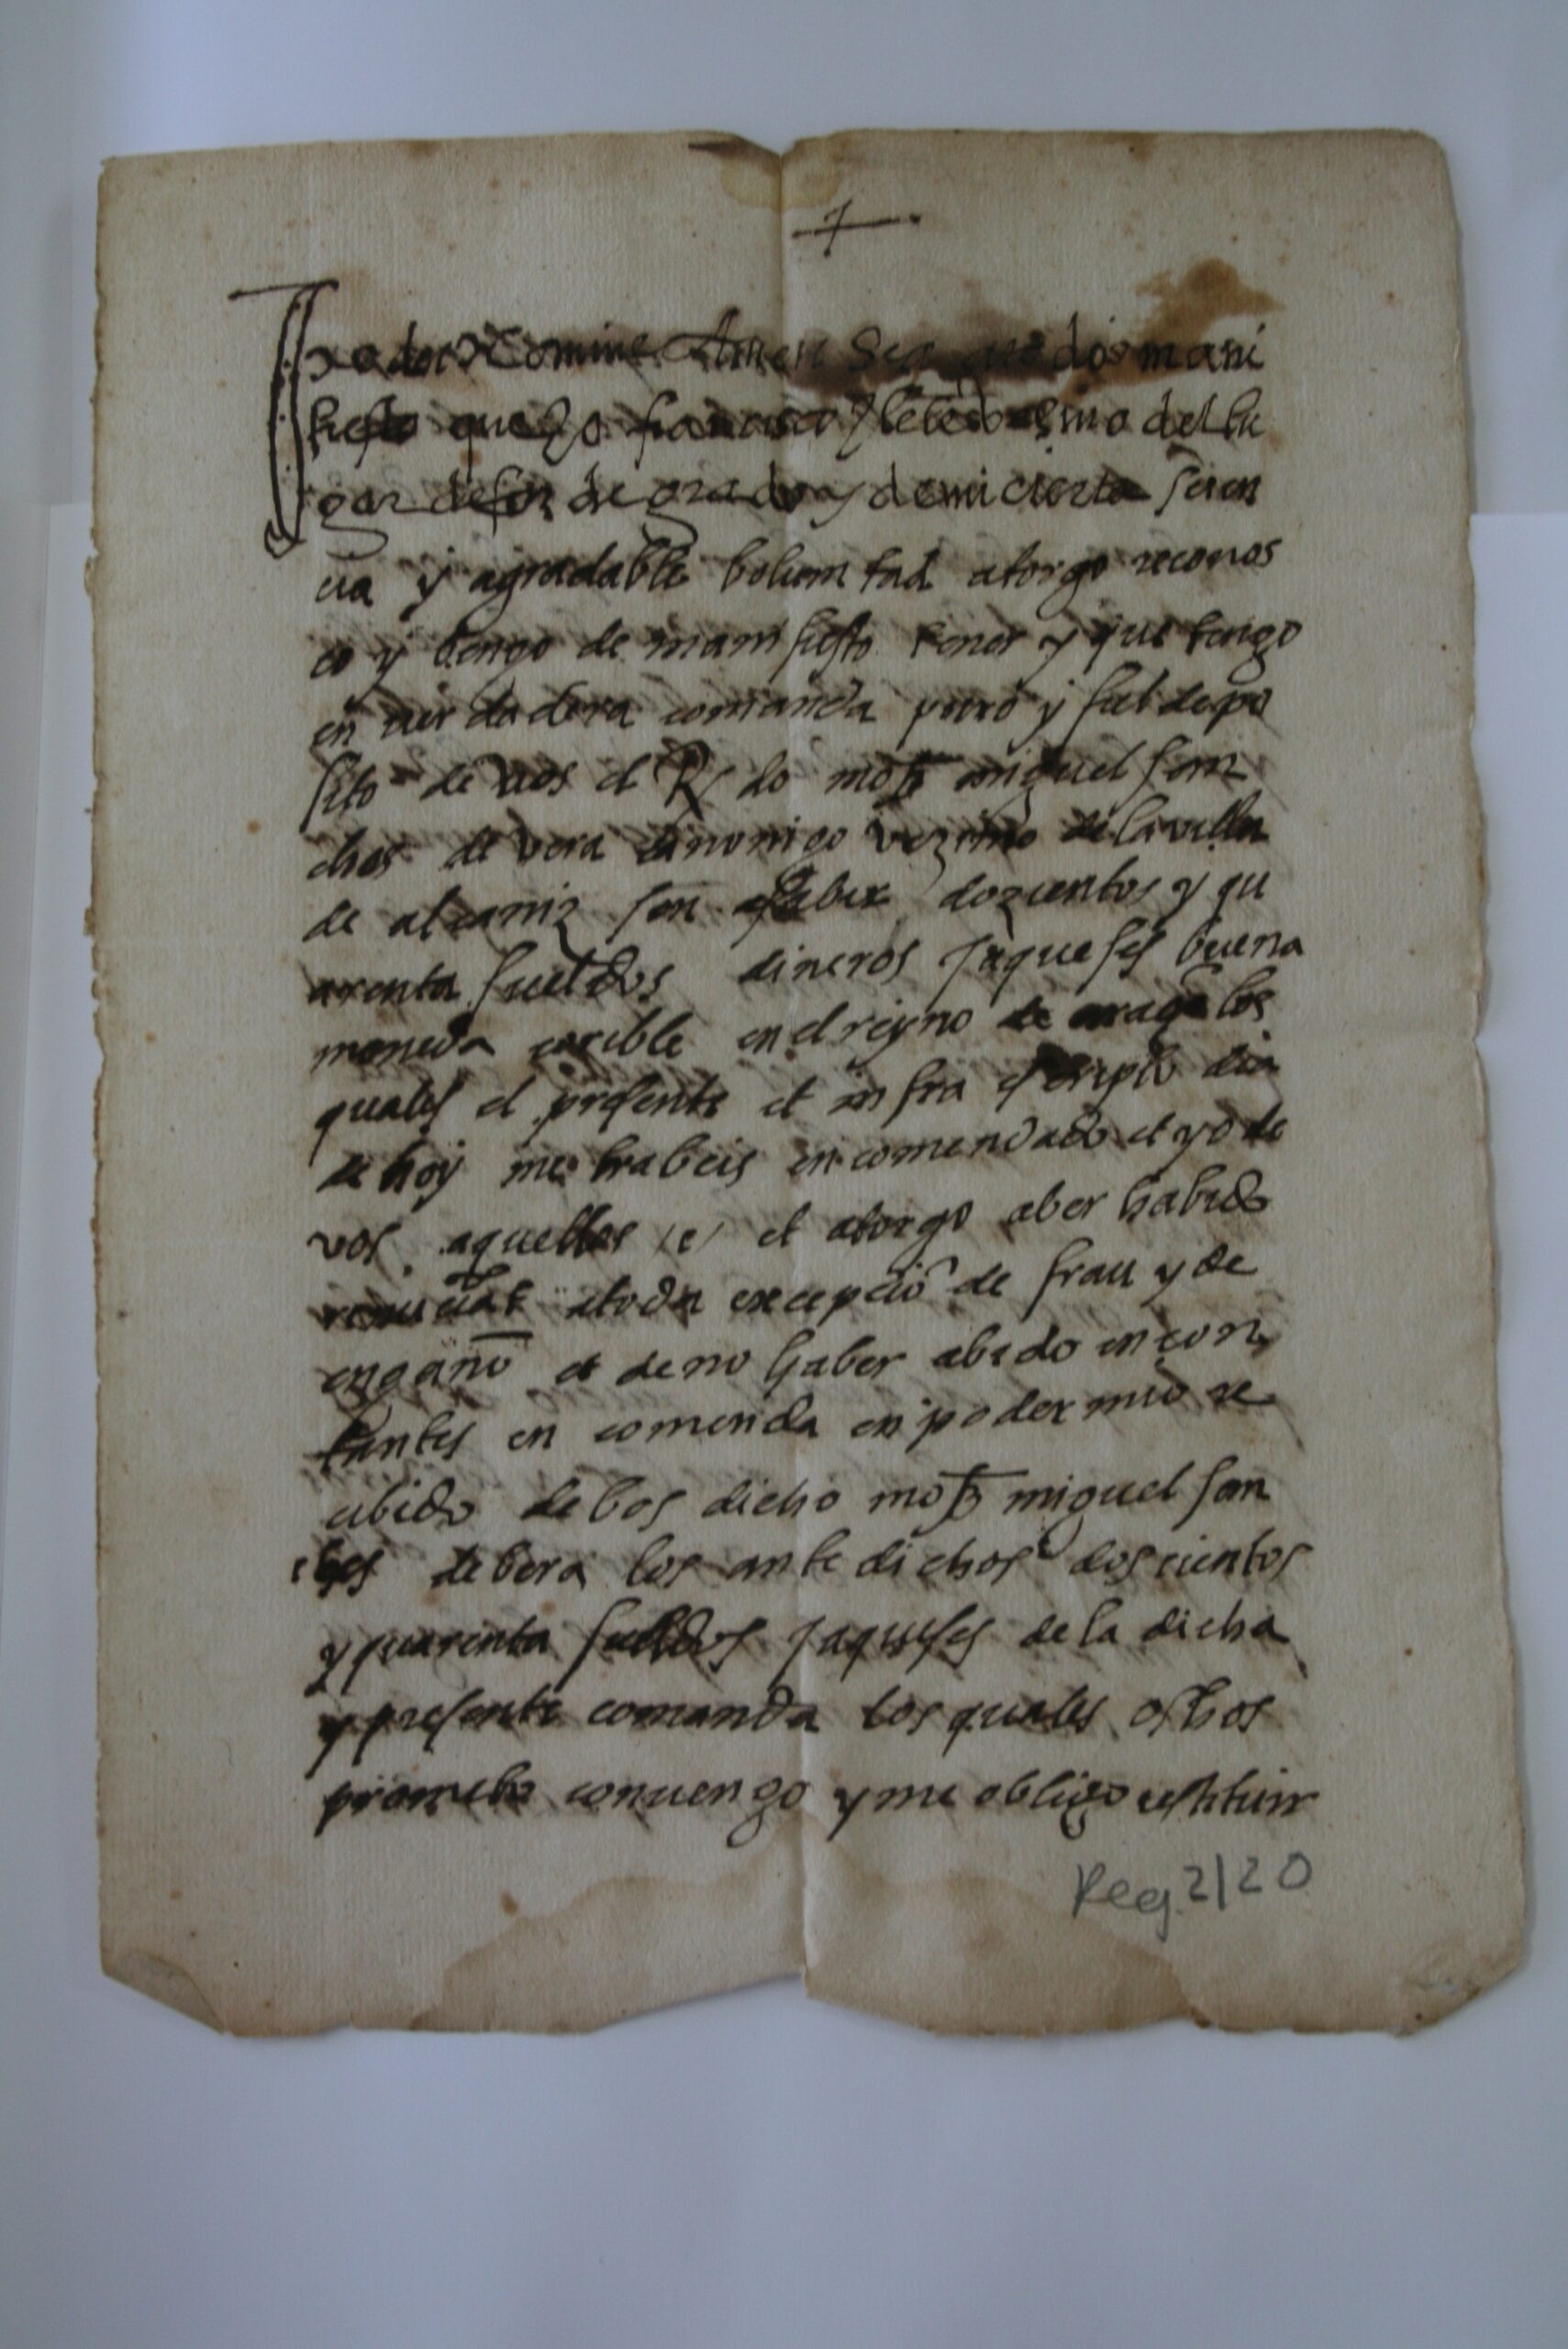 In dei Nomine Amen Sea a todos mani
fiesto que yo francisco vezino del lu
gar de foz de grado y de mi cierta scien
cia y agradable boluntad atorgo reconos
co y bengo de manifiesto tener y que tengo
en uerdadera comanda puro y fiel depo
sito de uos el Rdo mosen miguel san
ches de vera canonigo vezino de la villa
de alcaniz son asaber dozientos y qu
arenta sueldos dineros Jaqueses buena
moneda corible en el reyno de arago los
quales el presente et infra escripto dia
de hoy me habeis encomendado et yo de
vos aquellos et atorgo aber habido
renunciat atoda excepcio de frau y de
engaño et de no haber abido en con
tantes en comenda en poder mio re
cibido de bos dicho mosen miguel san
ches de bera los ante dichos doscientos
y quarenta sueldos Jaqueses de la dicha
y presente comanda los quales a bos
prometo conuengo y me obligo restituir
Reg. 2/20